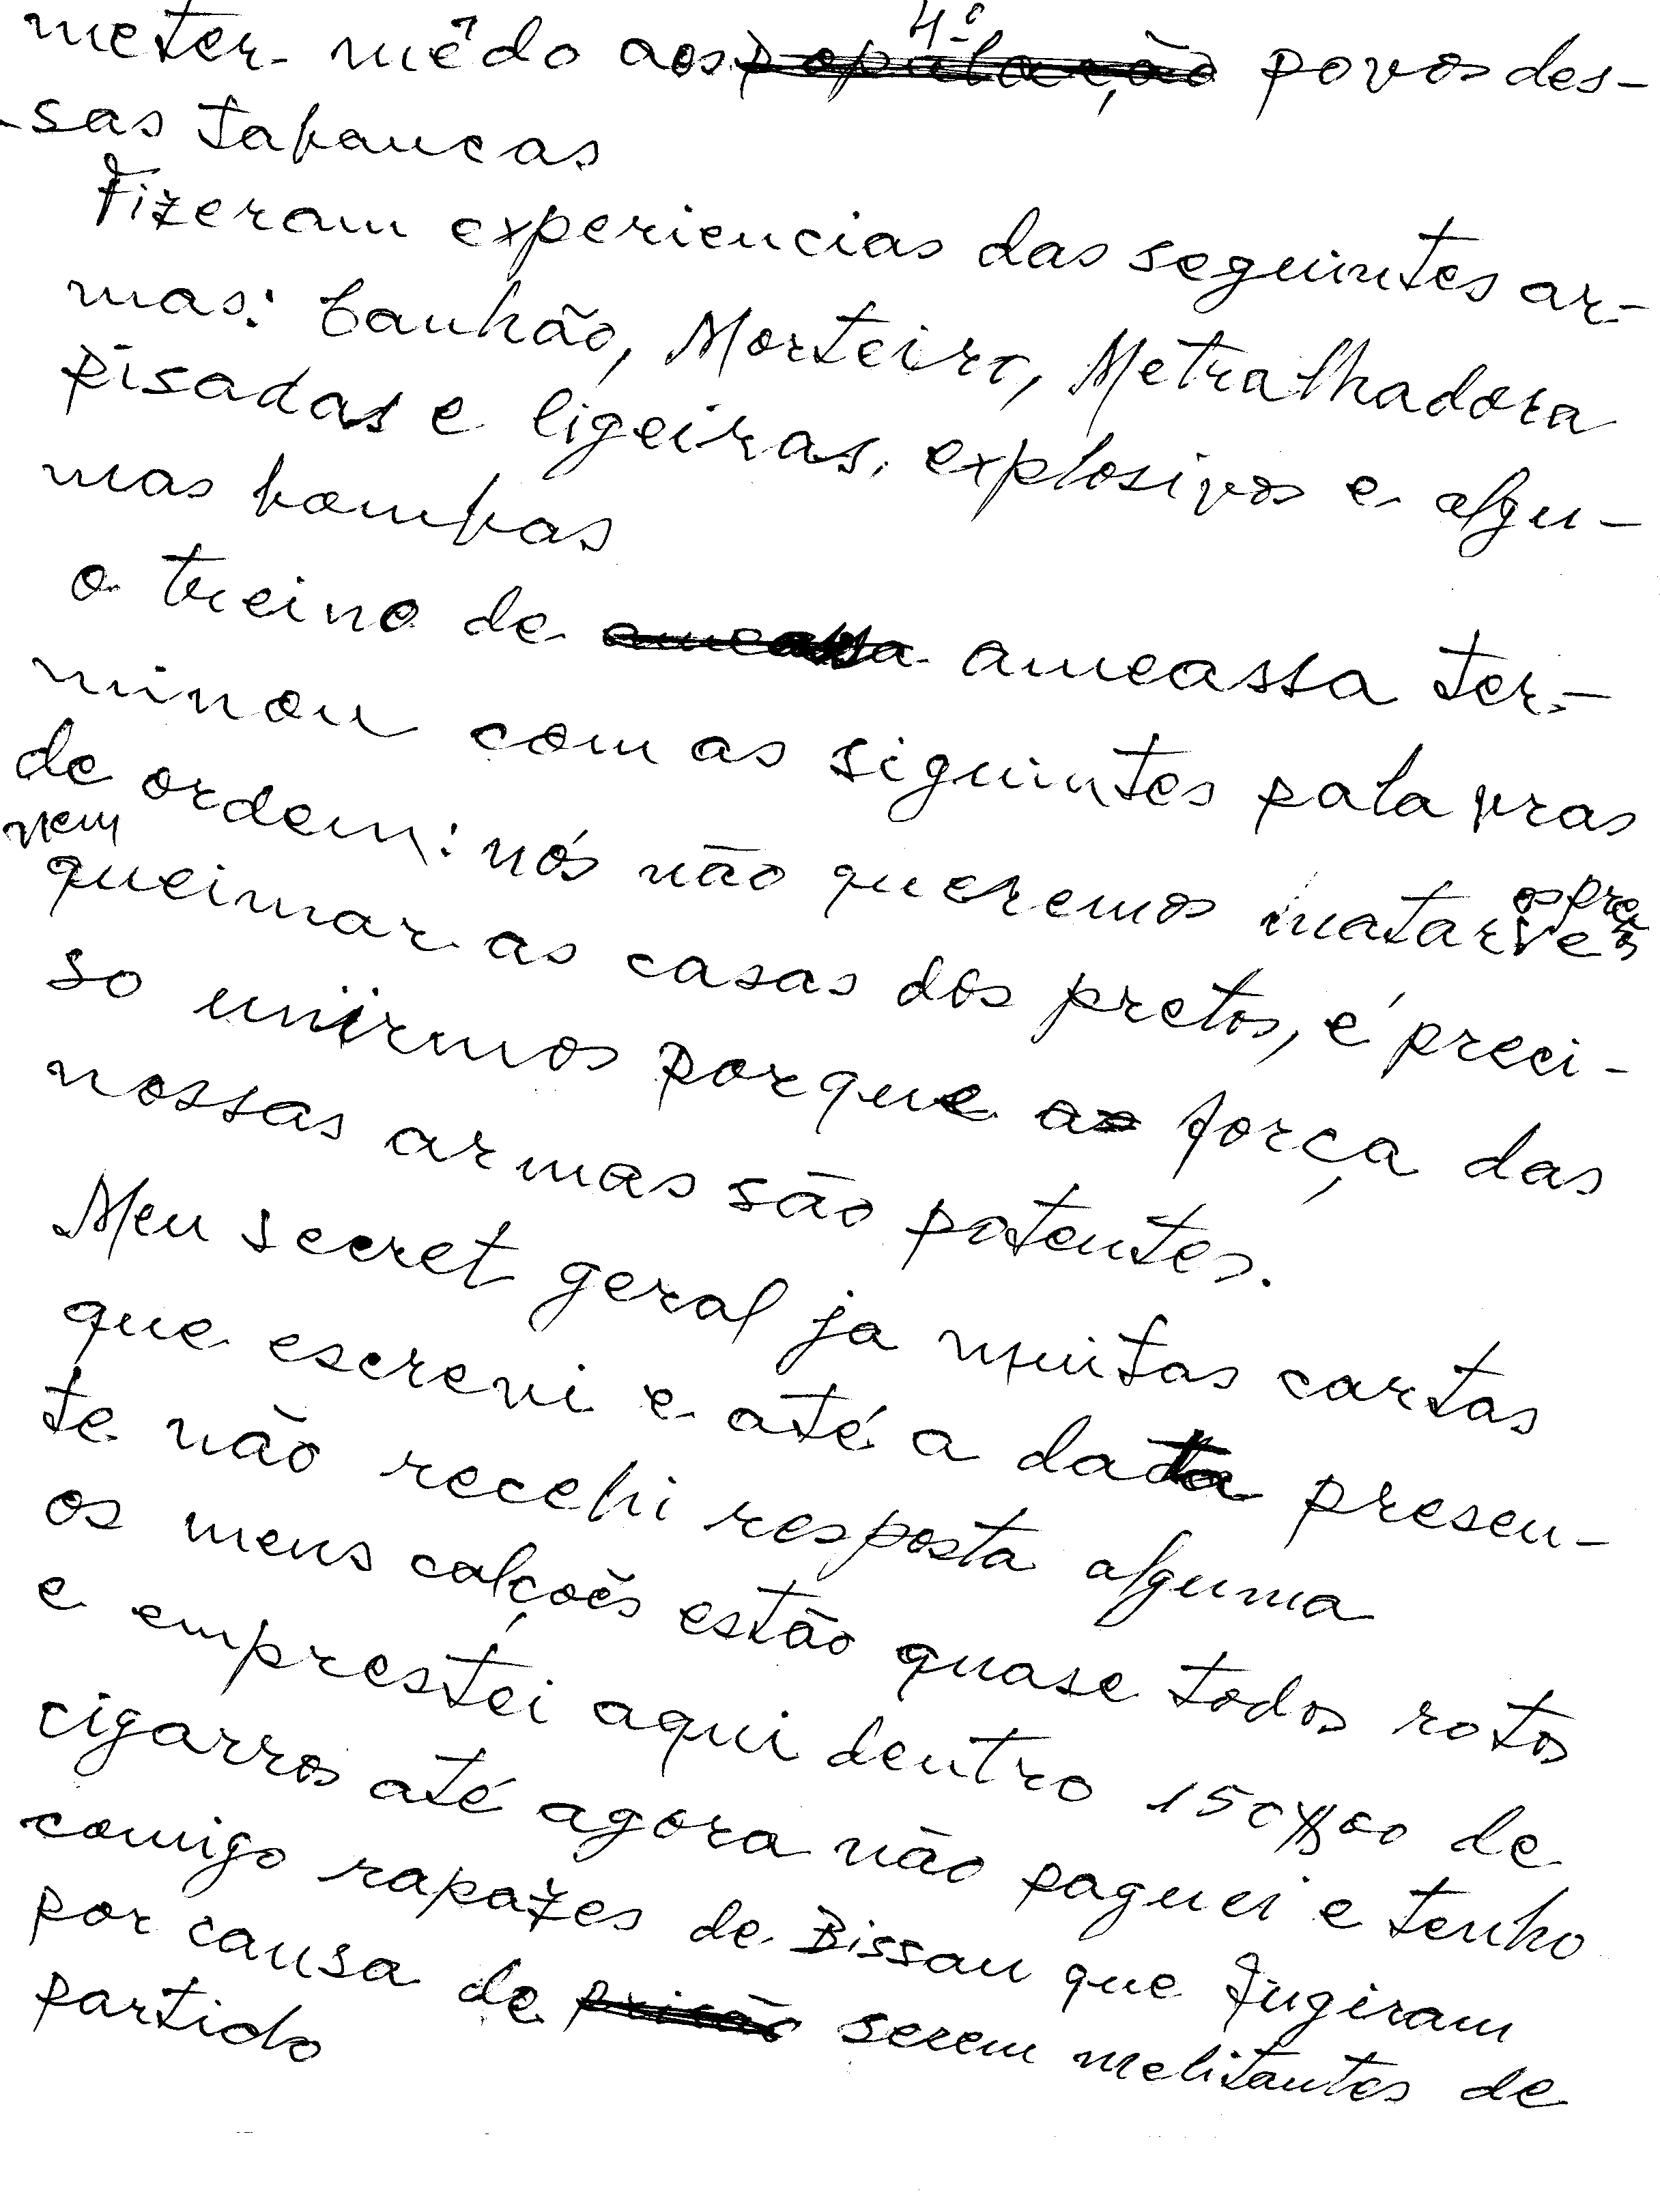 4º
meter mêdo aos população povos des-
-sas tabancas
Fizeram experiencias das seguintes ar-
mas: Canhão, Morteiro, Metralhadora
pisadas e ligeiras, explosivos e algu-
mas bombas
o treino de ameassa ter-
minou com as siguintes palavras
de ordem: nós não queremos matar os pre
nem queimar as casas dos pretos, é preci-
so uniirmos porque a força das
nossas armas são potentes.
Meu secret geral ja muitas cartas
que escrevi e até a data presen-
te não recebi resposta alguma
os meus calções estão quase todos rotos
e emprestei aqui dentro 150$00 de
cigarros até agora não paguei e tenho
comigo rapazes de Bissau que fugiram
por causa de serem melitantes de
partido